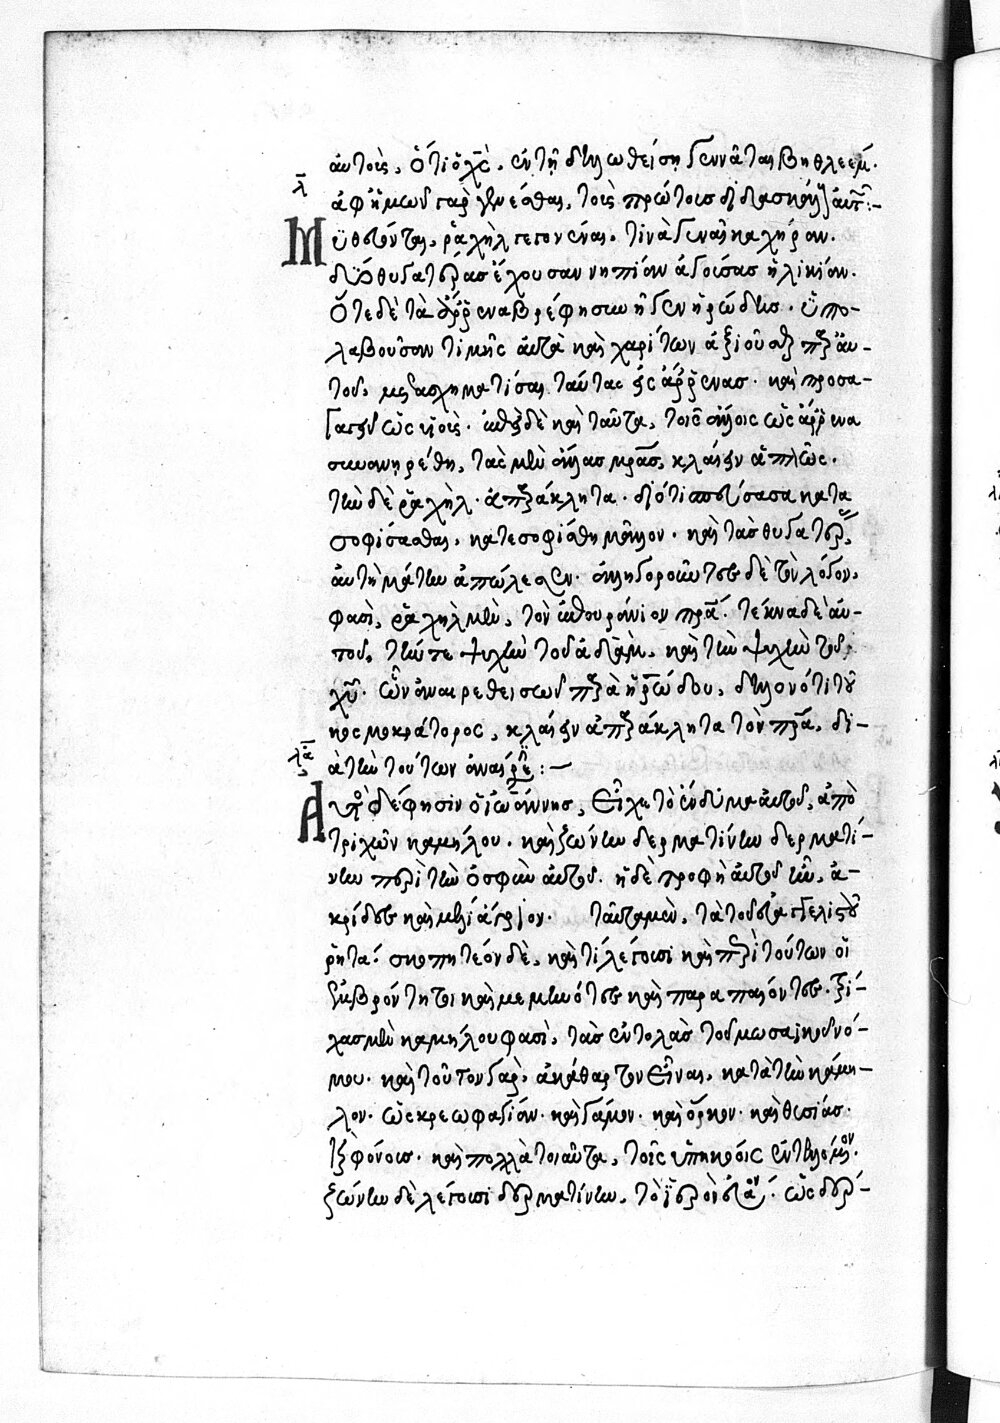 αὐτοῖς, ὅτι ὁ χς, ἐν τῇ δηλωθείσῃ γεννᾶται βηθλεέμ.
λ
ἀφ' ἡμῶν γὰρ γενέσθαι, τοῖς πρώτοις διδασκάλοις
Μυθεύονται, ῥαχὴλ γεγονέναι, τινὰ γυναῖκα χήραν.
δύο θυγατέρας ἔχουσαν νηπίαν ἀγούσας ἡλικίαν.
Ὅτε δὲ τὰ ἄρρενα βρέφη συνῄει ἡρώδης. ὑπο-
λαβοῦσαν τιμῆς αὐτὰ καὶ χαρίτων ἀξιοῦσθαι παρ' αὐ-
τοῦ, μετασχηματίσαι ταύτας εἰς ἄρρενας. καὶ προσα-
γαγεῖν ὡς υἱούς. ἐπεὶ δὲ καὶ ταῦτα, τοῖς ἄλλοις ὡς ἄρρενα
συνανῃρέθη, τὰς μὲν ἄλλας μρας, κλαίειν ἁπλῶς.
τὴν δὲ ῥαχὴλ. ἀπαράκλητα. διότι σπεύσασα κατα
σοφίσασθαι, κατεσοφίσθη μᾶλλον. καὶ τὰς θυγατέρας
αὐτὴ μάτην ἀπώλεσεν. ἀλληγοροῦντες δὲ τὸν λόγον,
φασὶ, ῥαχὴλ μὲν, τὸν ἐπουράνιον πρα. τέκνα δὲ αὐ-
τοῦ, τήν τε ψυχὴν τοῦ ἀδὰμ, καὶ τὴν ψυχὴν τοῦ
χυ. ὧν ἀναιρεθεισῶν παρὰ ἡρώδου, δηλονότι τοῦ
κοσμοκράτορος, κλαίειν ἀπαράκλητα τὸν πρα, δι-
λα
ὰ τὴν τούτων ἀναίρε :—
Αὐτὸς δέ φησιν ὁ ἰωάννης, εἶχε τὸ ἔνδυμα αὐτοῦ, ἀπὸ
τριχῶν καμήλου. καὶ ζώνην δερματίνην δερματί-
νην περὶ τὴν ὀσφὺν αὐτοῦ. ἡ δὲ τροφὴ αὐτοῦ ἦν, ἀ-
κρίδες καὶ μέλι ἄγριον. ταῦτα μὲν, τὰ τοῦ εὐαγγελιστοῦ
ῥητά. σκοπητέον δὲ, καὶ τί λέγουσι καὶ περὶ τούτων οἱ
ἐμβρόντητοι καὶ μεμηνότες καὶ παραπαίοντες. τρί-
χας μὲν καμήλου φασὶ, τὰς ἐντολὰς τοῦ μωσαϊκοῦ νό-
μου. καὶ τοῦτον γὰρ, ἀκάθαρτον εἶναι, κατὰ τὴν κάμη-
λον. ὡς κρεωφαγίαν. καὶ γάμον. καὶ ὅρκον. καὶ θυσίας.
καὶ φόνους. καὶ πολλὰ τοιαῦτα, τοῖς ὑπηκόοις ἐντελόμενον.
ζώνην δὲ λέγουσι δερματίνην, τὸ ἱερὸν εὐαν. ὡς δέρ-